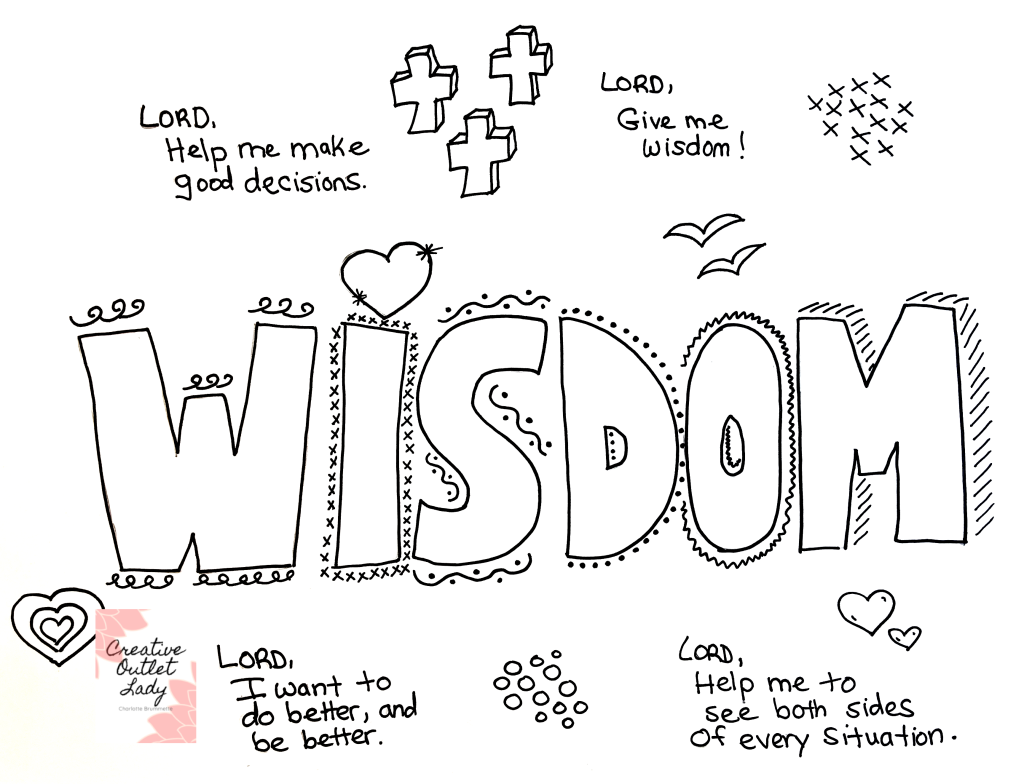 LORD,
Help me make
good decisions.
LORD,
Give me
wisdom!
WiSDOM
Creative
Outlet
Lady
Charlotte Brummette
LORD,
I want to
do better, and
be better.
LORD,
Help me to
see both sides
of every situation.